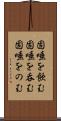 固唾を飲む
固唾を呑む
固唾をのむ